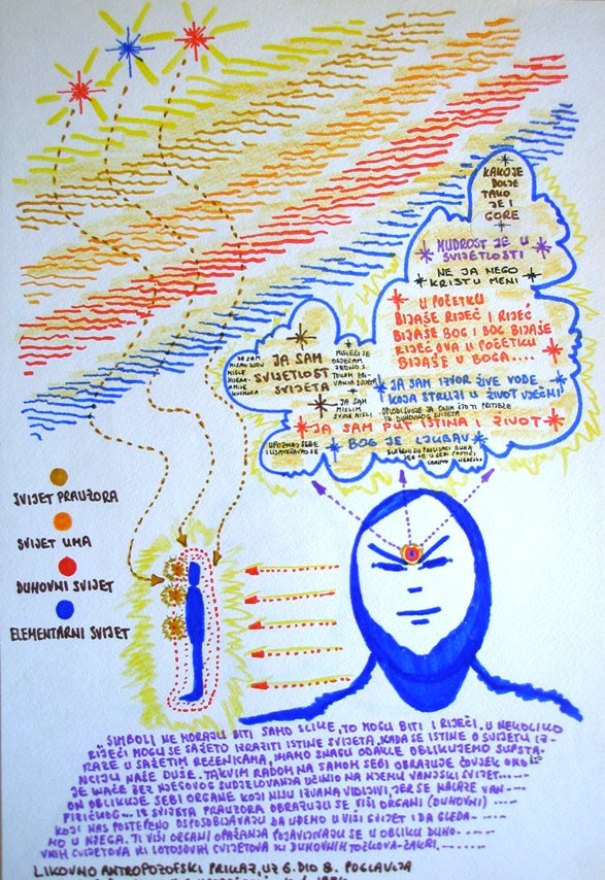 KAKO JE
DOLJE
TAKO
JE I
GORE
MUDROST JE U
SVIJETLOSTI
NE JA NEGO
KRIST U MENI
U POČETKU
BIJAŠE RIJEČ I RIJEČ
BIJAŠE BOG I BOG BIJAŠE
RIJEČ OVA U POČETKU
BIJAŠE U BOGA....
JA SAM
SVIJETLOST
SVIJETA
JA SAM
MISLIM
JA SAM IZVOR ŽIVE VODE
KOJA STRUJI U ŽIVOT VJEČNI
JA SAM PUT ISTINA I ŽIVOT
BOG JE LJUBAV
UPOZNAJ SEBE
SVIJET PRAUZORA
SVIJET UMA
DUHOVNI SVIJET
ELEMENTARNI SVIJET
"SIMBOLI NE MORAJU BITI SAMO SLIKE, TO MOGU BITI I RIJEČI. U NEKOLIKO
RIJEČI MOGU SE SAŽETO IZRAZITI ISTINE SVIJETA. KADA SE ISTINE O SVIJETU IZ-
RAZE U SAŽETIM REČENICAMA, IMAMO SNAGU ODAKLE OBLIKUJEMO SUPSTA-
NCIJU NAŠE DUŠE. TAKVIM RADOM NA SAMOM SEBI OBRAZUJE ČOVJEK ONO ŠTO
JE INAČE BEZ NJEGOVOG SUDJELOVANJA UČINIO NA NJEMU VANJSKI SVIJET......
ON OBLIKUJE SEBI ORGANE KOJI NISU IZVANA VIDLJIVI, JER SE NALAZE VAN
FIZIČNOG... IZ SVIJETA PRAUZORA OBRAZUJU SE VIŠI ORGANI (DUHOVNI) ....
KOJI NAS POSTEPENO OSPOSOBLJAVAJU DA UĐEMO U VIŠI SVIJET I DA GLEDA-
MO U NJEGA. TI VIŠI ORGANI OPAŽANJA POJAVLJUJU SE U OBLIKU DUHO-
VNIH CVIJETOVA ILI LOTOSOVIH CVIJETOVA ILI DUHOVNIH TOČKOVA-ČAKRI.......
LIKOVNO ANTROPOZOFSKI PRIKAZ, UZ 6. DIO 8. POGLAVLJA